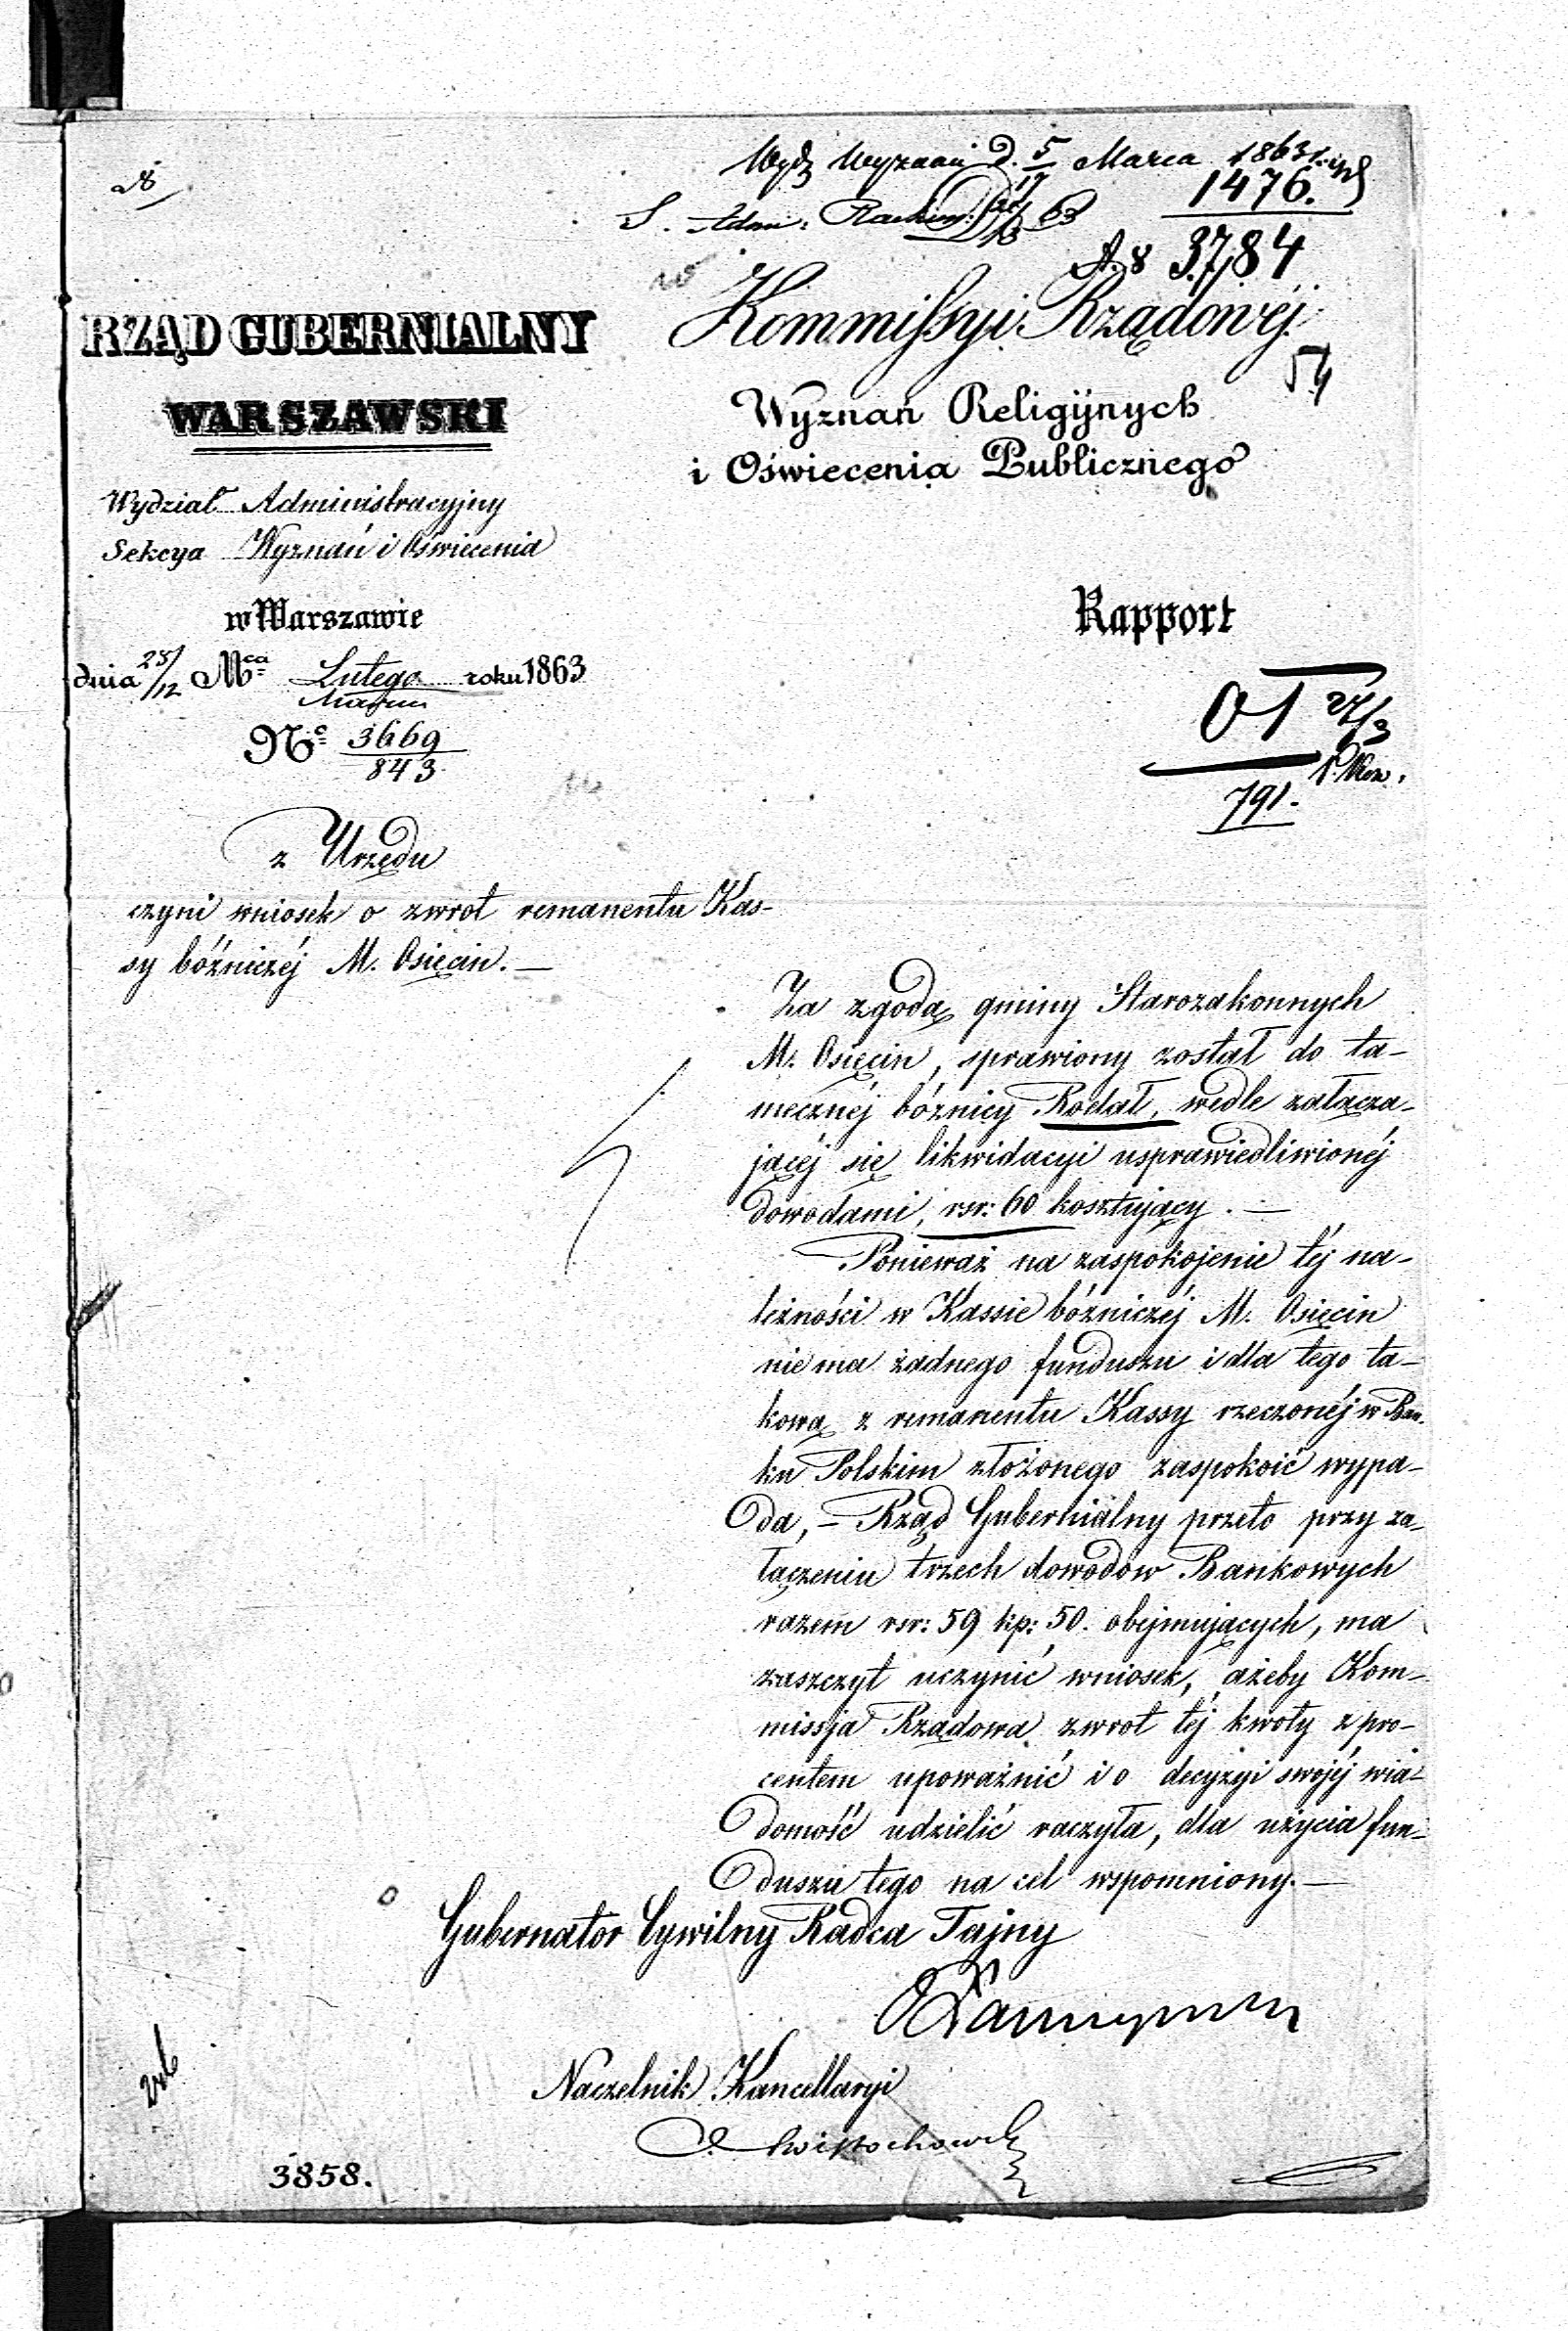 Wydz Wyznań d. 5/17 Marca 1863 r.
1476.
S. Adm. Rachun.
63
A. 8 3784
Kommissyi Rządowéj
54
RZĄD GUBERNIALNY
WARSZAWSKI
Wyznań Religijnych
i Oświecenia Publicznego
Wydział Administracyjny
Sekcya Wyznań i Oświecenia
w Warszawie
dnia 28/12 Mca Lutego/Marca roku 1863
No 3669/843
Rapport
791.
z Urzędu
czyni wniosek o zwrot remanentu Kas-
sy bóźniczéj M. Osięcin. —
Za zgodą gminy Starozakonnych
M. Osięcin, sprawiony został do ta-
mecznéj bóźnicy Rodał, wedle załącza-
jącéj się likwidacyi usprawiedliwionéj
dowodami, rsr: 60 kosztujący. —
Ponieważ na zaspokojenie téj na-
leżności w Kassie bóźniczéj M. Osięcin
nie ma żadnego funduszu i dla tego ta-
kową z remanentu Kassy rzeczonéj w Ban-
ku Polskim złożonego zaspokoić wypa-
da, — Rząd Gubernialny przeto przy za-
łączeniu trzech dowodów Bankowych
razem rsr: 59 kp: 50. obejmujących, ma
zaszczyt uczynić wniosek, ażeby Kom-
missja Rządowa zwrot téj kwoty z pro-
centem upoważnić i o decyzyi swojéj wia-
domość udzielić raczyła, dla użycia fun-
duszu tego na cel wspomniony. —
Gubernator Cywilny Radca Tajny
Naczelnik Kancellaryi
3858.